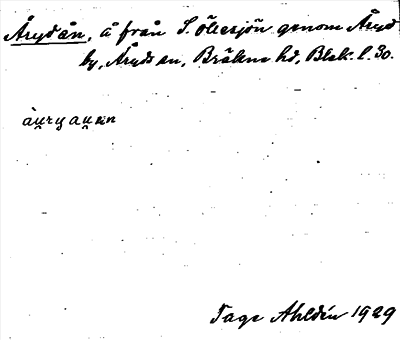 Årydån, å från S. Öllesjön genom Åryd
by, Åryds sn, Bräkne hd, Blek. l. 30.
àu̯ryau̯ɛn
Tage Ahldén 1929